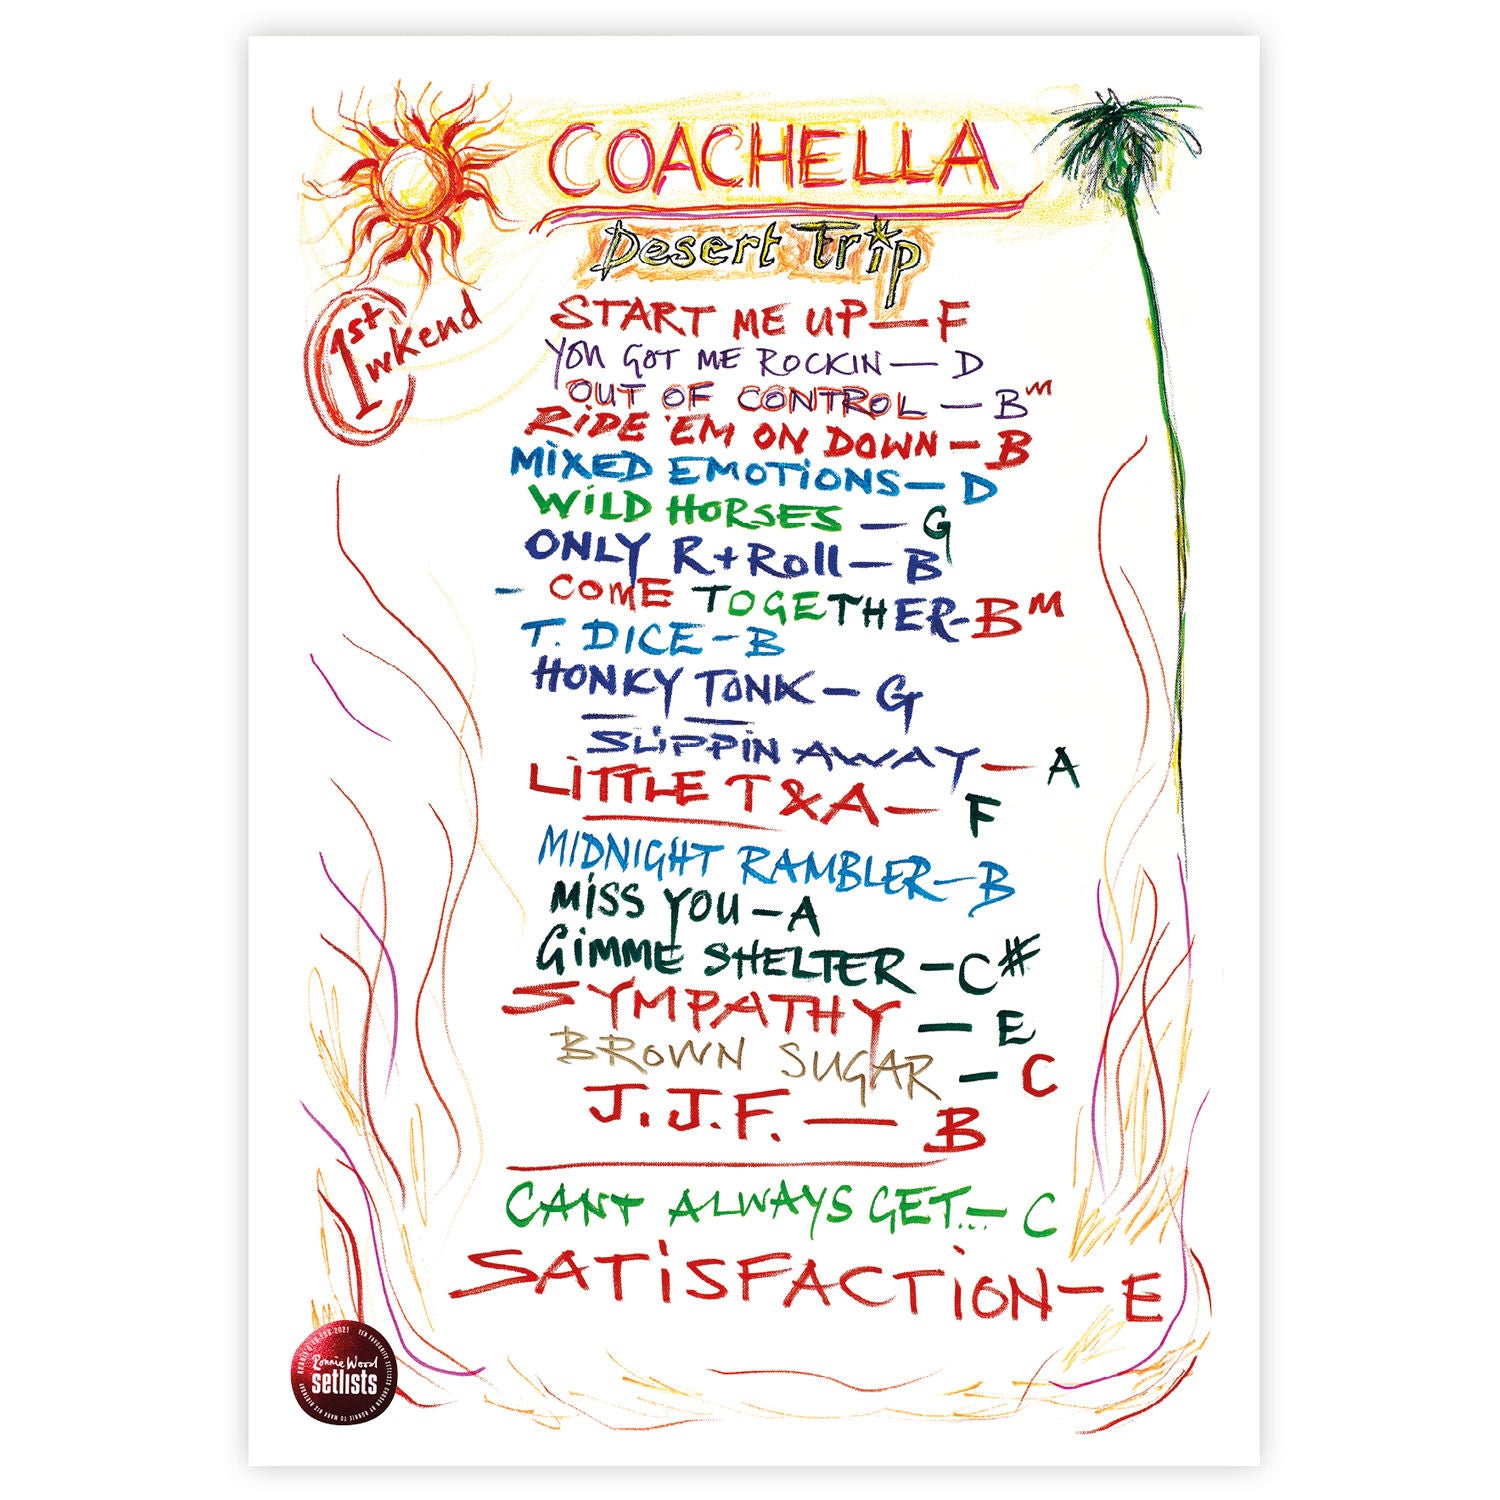 COACHELLA
Desert Trip
1st
wKend
START ME UP — F
YOU GOT ME ROCKIN — D
OUT OF CONTROL — Bᵐ
RiDE 'EM ON DOWN — B
MiXED EMOTiONS — D
WiLD HORSES — G
ONLY R+Roll — B
- COME TOGETHER - Bᴹ
T. DICE - B
HONKY TONK - G
SLiPPiN AWAY — A
LiTTLE T & A — F
MIDNIGHT RAMBLER — B
MiSS YOU - A
GiMME SHELTER - C#
SYMPATHY — E
BROWN SUGAR - C
J.J.F. — B
CANT ALWAYS GET... - C
SATiSFACTiON - E
Ronnie Wood
setlists